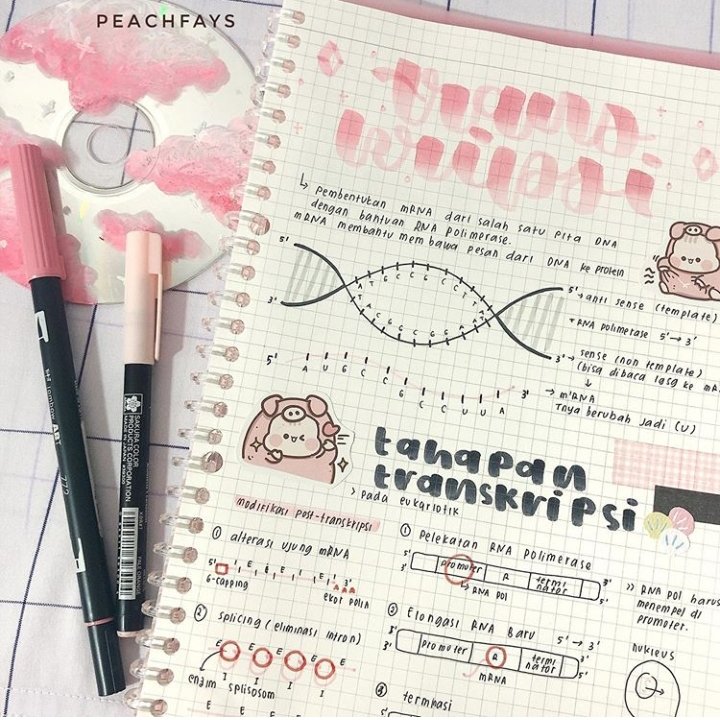 PEACHFAYS
trans
kripsi
↳ pembentukan mRNA dari salah satu pita DNA
dengan bantuan RNA polimerase.
mRNA membantu membawa pesan dari DNA ke protein
5'
3'
A T G C C G C C T T A
T A C G G C G G A A T
5' → anti sense (template)
→ RNA polimerase 5' → 3'
3' → sense (non template)
(bisa dibaca lgsg ke mR
→ mRNA
Tnya berubah jadi (U)
5' A U G C C G C C U U A 3'
tahapan
transkripsi
> pada eukariotik
modifikasi post-transkripsi
① alterasi ujung mRNA
5' E I E I 3'
G-capping
A A A
ekor poliA
② splicing (eliminasi intron)
E E E E E
I I I I
enzim splisosom
① pelekatan RNA polimerase
5' 3'
promoter R termi
nator
3' 5'
↳ RNA pol
>> RNA pol harus
menempel di
promoter.
② Elongasi RNA Baru 5' → 3'
promoter R termi
nator
mRNA
nukleus
③
TOMBOW AB
772
SAKURA COLOR
PRODUCTS CORPORATION
MADE IN JAPAN